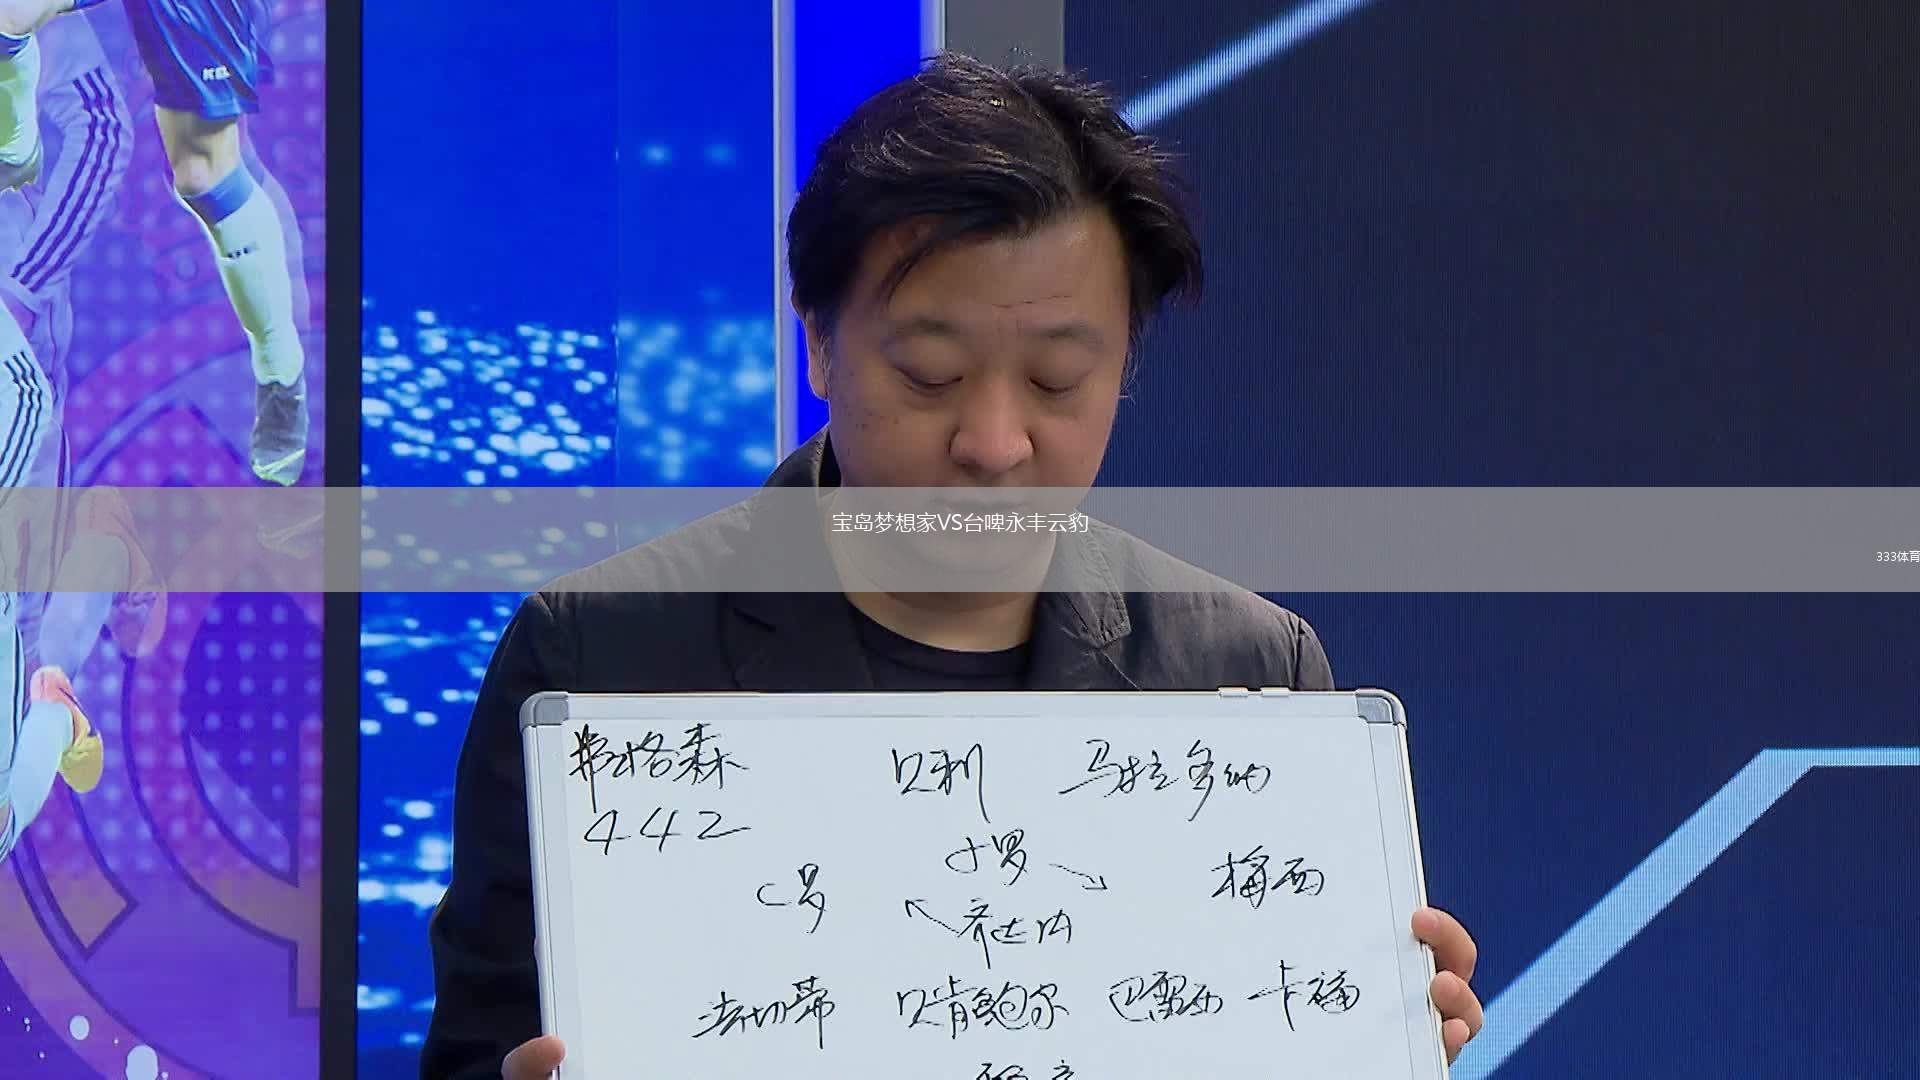 KEL
宝岛梦想家VS台啤永丰云豹
333体育
弗格森 贝利 马拉多纳
442
小罗
C罗 梅西
齐达内
法切蒂 贝肯鲍尔 巴雷西 卡福